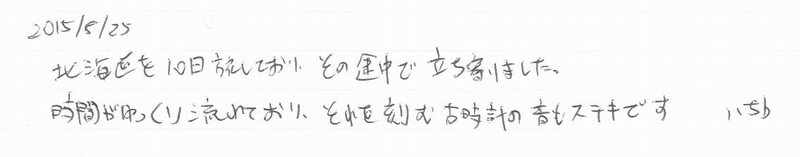 2015/8/25
北海道を10日旅しており、その途中で立ち寄りました。
時間がゆっくり流れており、それを刻む古時計の音もステキです